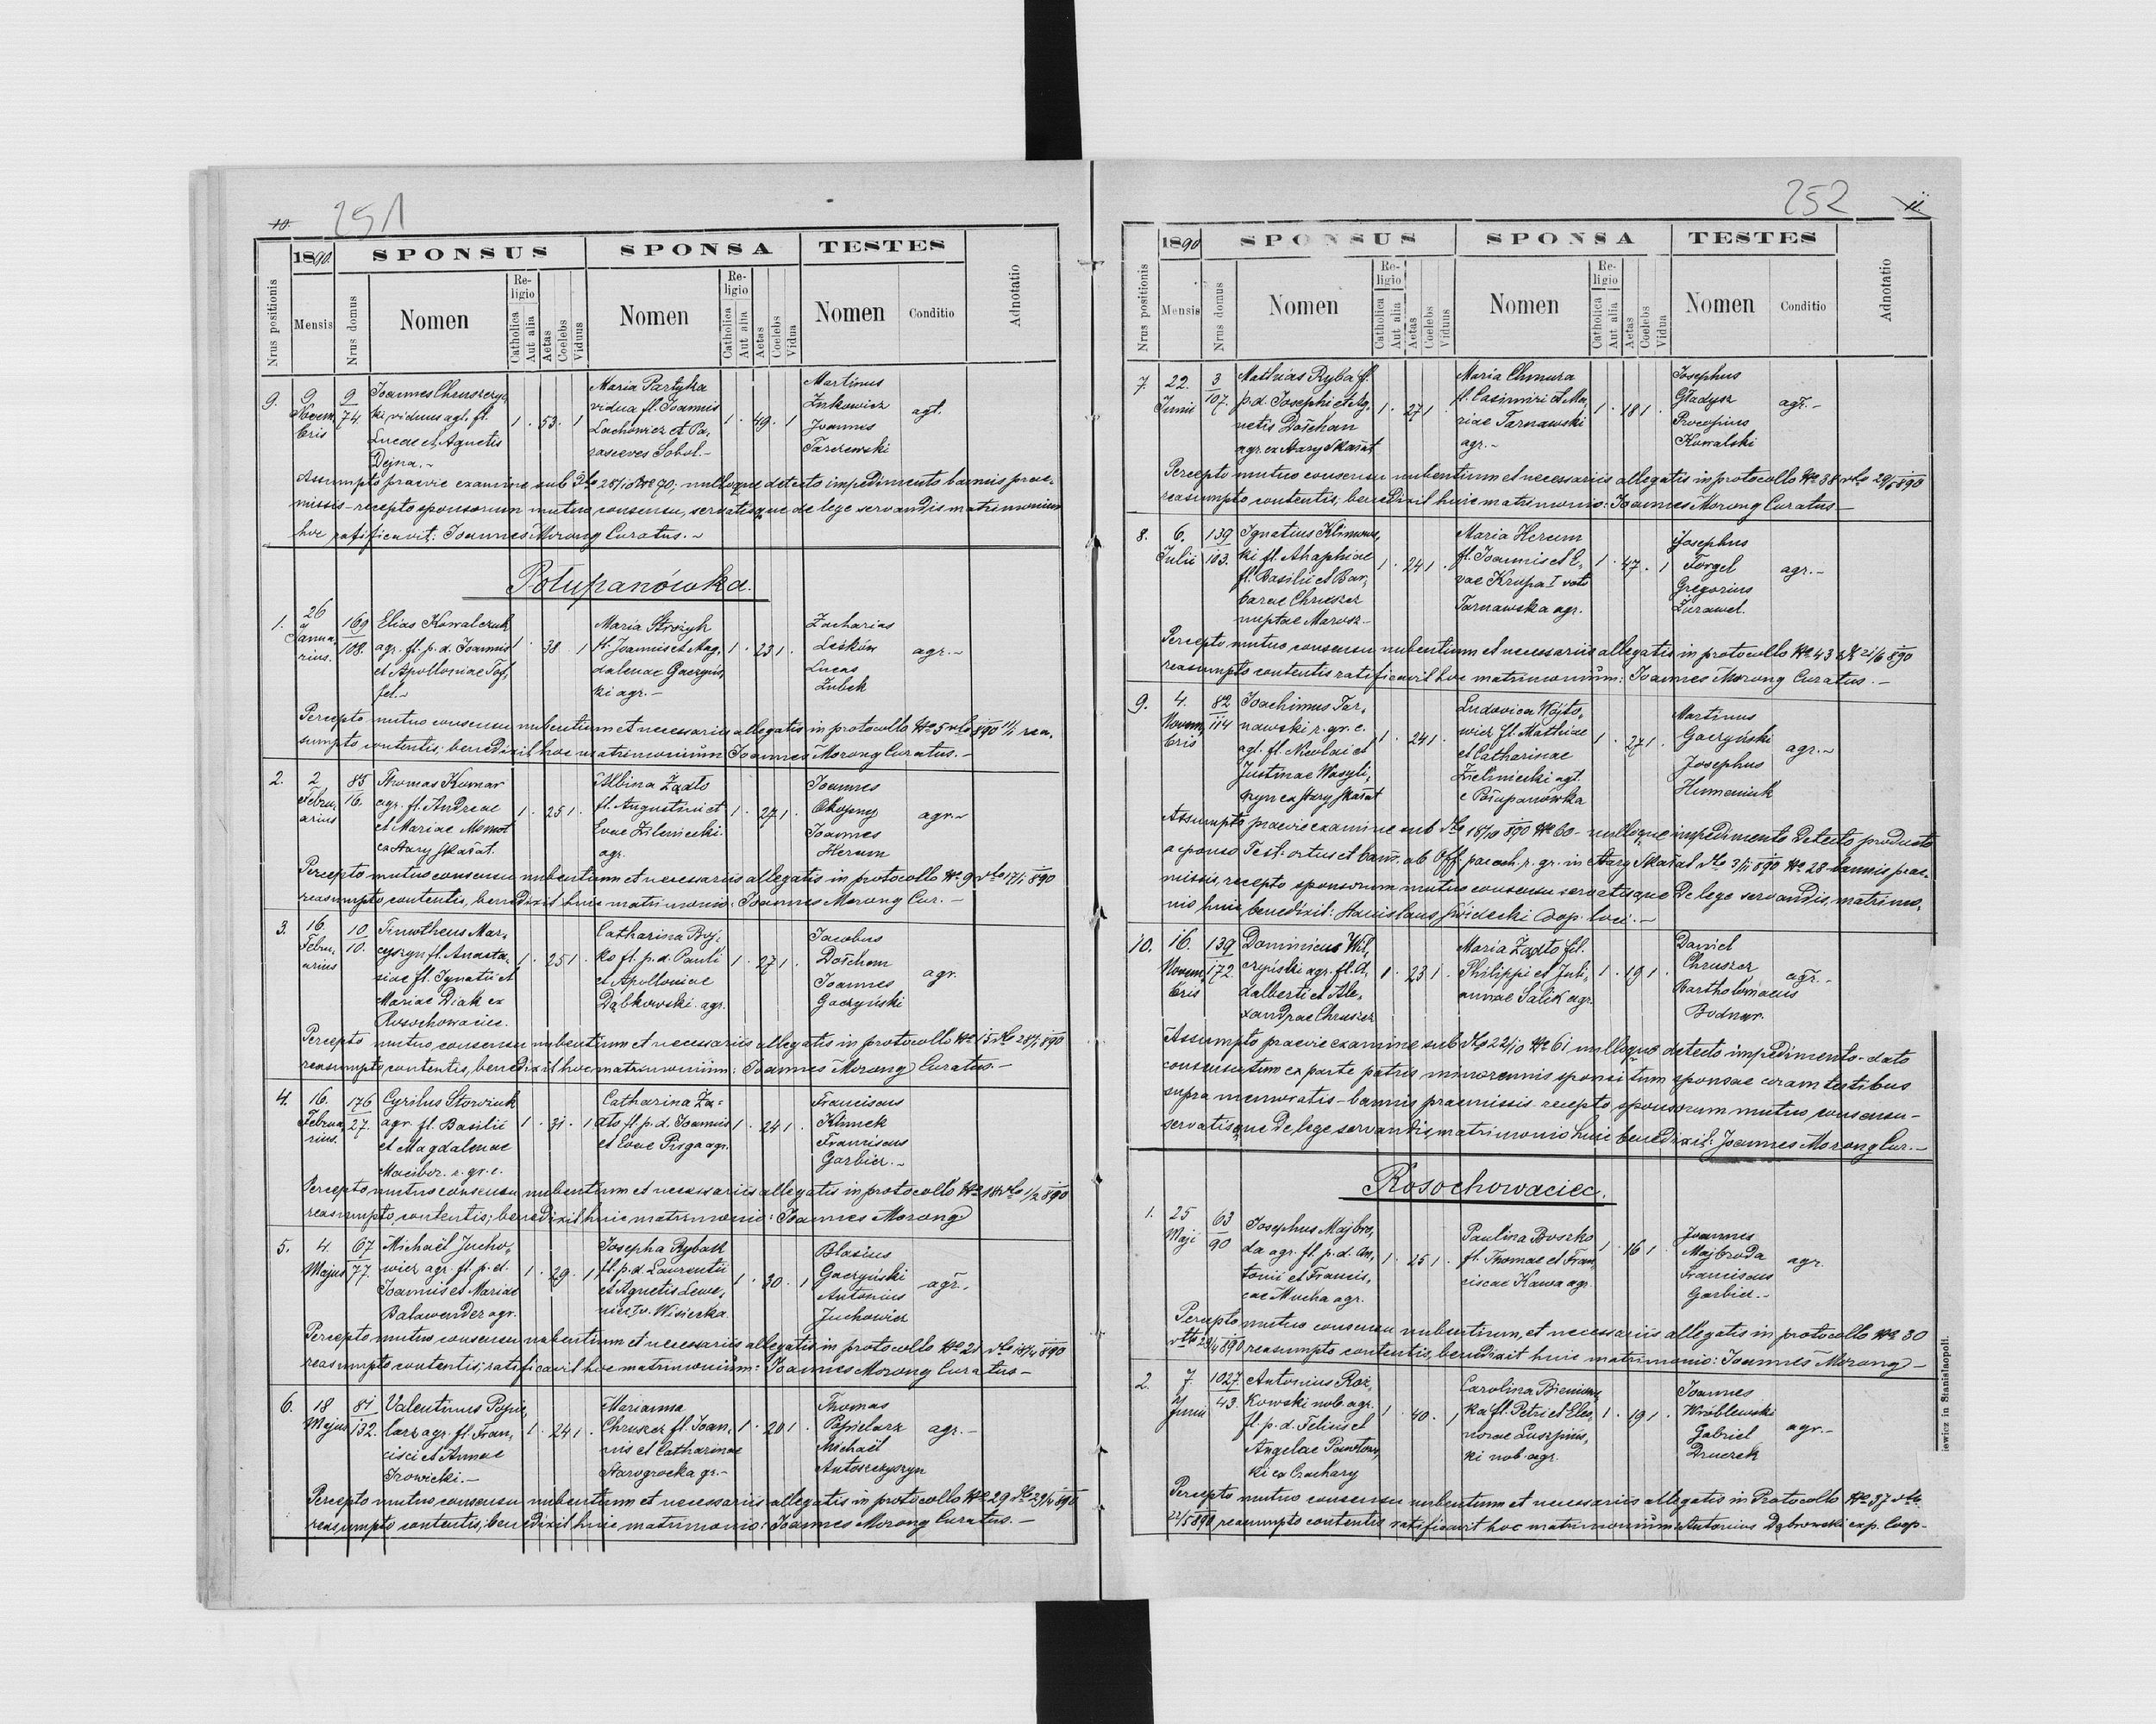 10.
251
1890.
SPONSUS
SPONSA
TESTES
Nrus positionis
Mensis
Nrus domus
Nomen
Religio
Catholica
Aut alia
Aetas
Coelebs
Viduus
Nomen
Religio
Catholica
Aut alia
Aetas
Coelebs
Vidua
Nomen
Conditio
Adnotatio
9.
9
Novembris
9
74.
Joannes Chruszczyc,
ki, viduus agl. fl.
Lucae et Agnetis
Dejna.~
1 . 53 . 1
Maria Partyka
vidua fl. Joannis
Lachowicz et Pa,
rasceves Sobol.-
1 . 49 . 1
Martinus
Zukowicz
Joannes
Tarczewski
agl.
Assumpto praevie examine sub dto 28/10 No 70; nulloque detecto impedimento bannis prae,
missis - recepto sponsorum mutuo consensu, servatisque de lege servandis matrimonium
hoc ratificavit: Joannes Morong Curatus.~
Połupanówka.
1.
26
Januarius.
169
108.
Elias Kowalczuk
agr. fl. p. d. Joannis
et Apolloniae Tof,
fel.~
1 . 38 . 1
Maria Strożyk
fl. Joannis et Mag,
dalenae Gaczyńs,
ki agr.-
1 . 23 1 .
Zacharias
Leśków
Lucas
Zubek
agr.~
Percepto mutuo consensu nubentium et necessariis allegatis in protocollo No 5 dto 890 11/1 rea,
sumpto contentis; benedixit hoc matrimonium Joannes Morong Curatus.-
2.
2
Februarius
85
16.
Thomas Komar
agr. fl. Andreae
et Mariae Momot
ex Stary Skałat.
1 . 25 1 .
Albina Żądto
fl. Augustini et
Evae Zileniecki
agr.
1 . 27 1 .
Joannes
Okopny
Joannes
Herum
agr.~
Percepto mutuo consensu nubentium et necessariis allegatis in protocollo No 9 dto 17/1 890
reasumpto contentis, benedixit huic matrimonio: Joannes Morong Cur.-
3.
16.
Februarius
10
10.
Timotheus Mar,
cyszyn fl. Anasta,
siae fl. Ignatii et
Mariae Diak ex
Rosochowaciec.
1 . 25 1 .
Catharina Boj,
ko fl. p. d. Pauli
et Apolloniae
Dąbkowski agr.
1 . 27 1 .
Jacobus
Dołchan
Joannes
Gaczyński
agr.
Percepto mutuo consensu nubentium et necessariis allegatis in protocollo No 15 dto 28/1 890
reasumpto contentis, benedixit hoc matrimonium: Joannes Morong Curatus.-
4.
16.
Februarius.
176
27.
Cyrilus Storożuk
agr. fl. Basilii
et Magdalenae
Macibor. r. gr. c.
1 . 31 . 1
Catharina Żą=
dto fl. p. d. Joannis
et Evae Pirga agr.
1 . 24 1 .
Franciscus
Klimek
Franciscus
Garbicz.~
Percepto mutuo consensu nubentium et necessariis allegatis in protocollo No 18 dto 1/2 890
reasumpto contentis; benedixit huic matrimonio: Joannes Morong
5.
4.
Majus
67
77.
Michaël Jucho,
wicz agr. fl. p. d.
Joannis et Mariae
Balawender agr.
1 . 29 . 1
Josepha Rybak
fl. p. d. Laurentii
et Agnetis Lewe,
niec Iv. Wisierka
1 . 30 . 1
Blasius
Gaczyński
Antonius
Juchowicz
agr.
Percepto mutuo consensu nubentium et necessariis allegatis in protocollo No 21 dto 18/4 890
reasumpto contentis; ratificavit hoc matrimonium: Joannes Morong Curatus-
6.
18
Majus
81
132.
Valentinus Popie,
larz agr. fl. Fran,
cisci et Annae
Irowicki.-
1 . 24 1 .
Marianna
Chruszcz fl. Joan,
nis et Catharinae
Starogrocka gr.-
1 . 20 1 .
Thomas
Popielarz
Michaël
Antoszczyszyn
agr.-
Percepto mutuo consensu nubentium et necessariis allegatis in protocollo No 29 dto 29/4 890
reasumpto contentis; benedixit huic matrimonio: Joannes Morong Curatus.-
252
11.
1890
SPONSUS
SPONSA
TESTES
Nrus positionis
Mensis
Nrus domus
Nomen
Religio
Catholica
Aut alia
Aetas
Coelebs
Viduus
Nomen
Religio
Catholica
Aut alia
Aetas
Coelebs
Vidua
Nomen
Conditio
Adnotatio
7.
22.
Junii
3
107.
Mathias Ryba fl.
p. d. Josephi et Ag,
netis Dołchan
agr. ex Stary Skałat
1 . 27 1 .
Maria Chmura
fl. Casimiri et Ma,
riae Tarnawski
agr.~
1 . 18 1 .
Josephus
Gładysz
Procopius
Kowalski
agr.-
Percepto mutuo consensu nubentium et necessariis allegatis in protocollo No 38 dto 29/5 890
reasumpto contentis; benedixit huic matrimonio: Joannes Morong Curatus.-
8.
6.
Julii
139
103.
Ignatius Klimows,
ki fl. Ahaphiae
fl. Basilii et Bar,
barae Chruszcz
nuptae Marosz-
1 . 24 1 .
Maria Herum
fl. Joannis et E,
vae Krupa I voto
Tarnawska agr.
1 . 47 . 1
Josephus
Forgel
Gregorius
Żurawel.
agr.-
Percepto mutuo consensu nubentium et necessariis allegatis in protocollo No 43 dto 21/6 890
reasumpto contentis ratificavit hoc matrimonium: Joannes Morong Curatus.-
9.
4.
Novembris
82
114
Joachimus Tar,
nawski r. gr. c.
agl. fl. Nicolai et
Justinae Wasyli,
szyn ex Stary Skałat
1 . 24 1 .
Ludovica Wójto,
wicz fl. Mathiae
et Catharinae
Zieliniecki agl.
e Połupanówka
1 . 27 1 .
Martinus
Gaczyński
Josephus
Humeniuk
agr.~
Assumpto praevie examine sub dto 18/10 890 No 60 - nulloque impedimento detecto producto
a sponso Test. ortus et bann. ab Off. paroch. r. gr. in Stary Skałat dto 3/11 890 No 28 - bannis prae,
missis, recepto sponsorum mutuo consensu servatisque de lege servandis, matrimo,
nio huic benedixit: Stanislaus Świdecki Coop. loci.-
10.
16.
Novembris
139
172.
Dominicus Wil,
czyński agr. fl. A,
dalberti et Ale,
xandrae Chruszcz
1 . 23 1 .
Maria Żądto fil.
Philippi et Juli,
annae Salik agr.
1 . 19 1 .
Daniel
Chruszcz
Bartholomaeus
Bodnar.
agr.-
Assumpto praevie examine sub dto 22/10 No 61 nulloque detecto impedimento - dato
consensu tum ex parte patris minorennis sponsi tum sponsae coram testibus
supra memoratis - bannis praemissis - recepto sponsorum mutuo consensu -
servatisque de lege servandis, matrimonio huic benedixit: Joannes Morong Cur.-
Rosochowaciec.
1.
25
Maji
63
90
Josephus Majbro,
da agr. fl. p. d. An,
tonii et Francis,
cae Mucha agr.
1 . 25 1 .
Paulina Boszko
fl. Thomae et Fran,
ciscae Kawa agr.
1 . 16 1 .
Joannes
Majbroda
Franciscus
Garbicz.-
agr.
Percepto mutuo consensu nubentium, et necessariis allegatis in protocollo No 30
dto 29/4 890, reasumpto contentis, benedixit huic matrimonio: Joannes Morong-
2.
7.
Junii
1027
43.
Antonius Roż,
kowski nob. agr.
fl. p. d. Felicis et
Angelae Pawłows,
ki ex Crachary
1 . 40 . 1
Carolina Bieniows,
ka fl. Petri et Eleo,
norae Luszpińs,
ki nob. agr.
1 . 19 1 .
Joannes
Wróblewski
Gabriel
Druczek
agr.-
Percepto mutuo consensu nubentium et necessariis allegatis in Protocollo No 37 dto
22/5 890, reasumpto contentis ratificavit hoc matrimonium: Antonius Dąbrowski exp. Coop-
iewicz in Stanislaopoli.